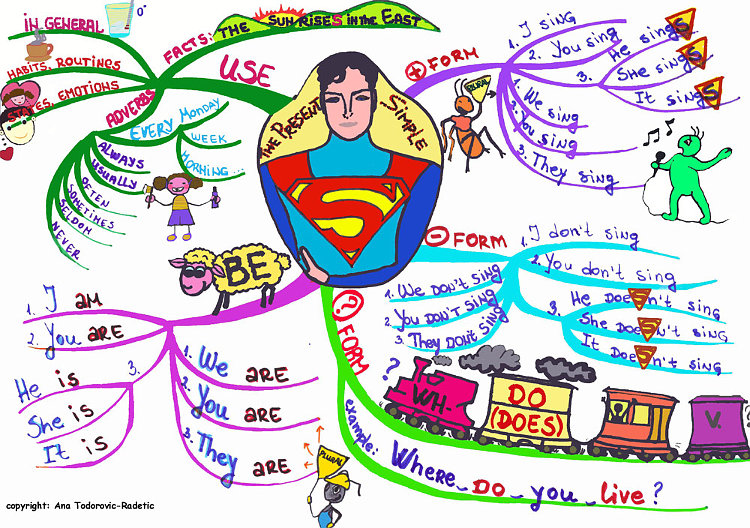 The Present Simple
USE
FACTS: THE SUN RISES in the EAST
IN GENERAL
HABITS, ROUTINES
STATES, EMOTIONS
ADVERBS
EVERY MONDAY
WEEK
MORNING...
ALWAYS
USUALLY
OFTEN
SOMETIMES
SELDOM
NEVER
+ FORM
1. I sing
2. You sing
3. He singS
She singS
It singS
PLURAL
1. We sing
2. You sing
3. They sing
- FORM
1. I don't sing
2. You don't sing
3. He DoeSn't sing
She DoeSn't sing
It DoeSn't sing
1. We DON'T SING
2. YOU DON'T SING
3. They DON'T SING
? FORM
?
WH-
DO
(DOES)
V.
?
example: Where DO you live?
BE
1. I AM
2. You ARE
3. He is
She is
It is
1. We ARE
2. You ARE
3. They ARE
PLURAL
copyright: Ana Todorovic-Radetic